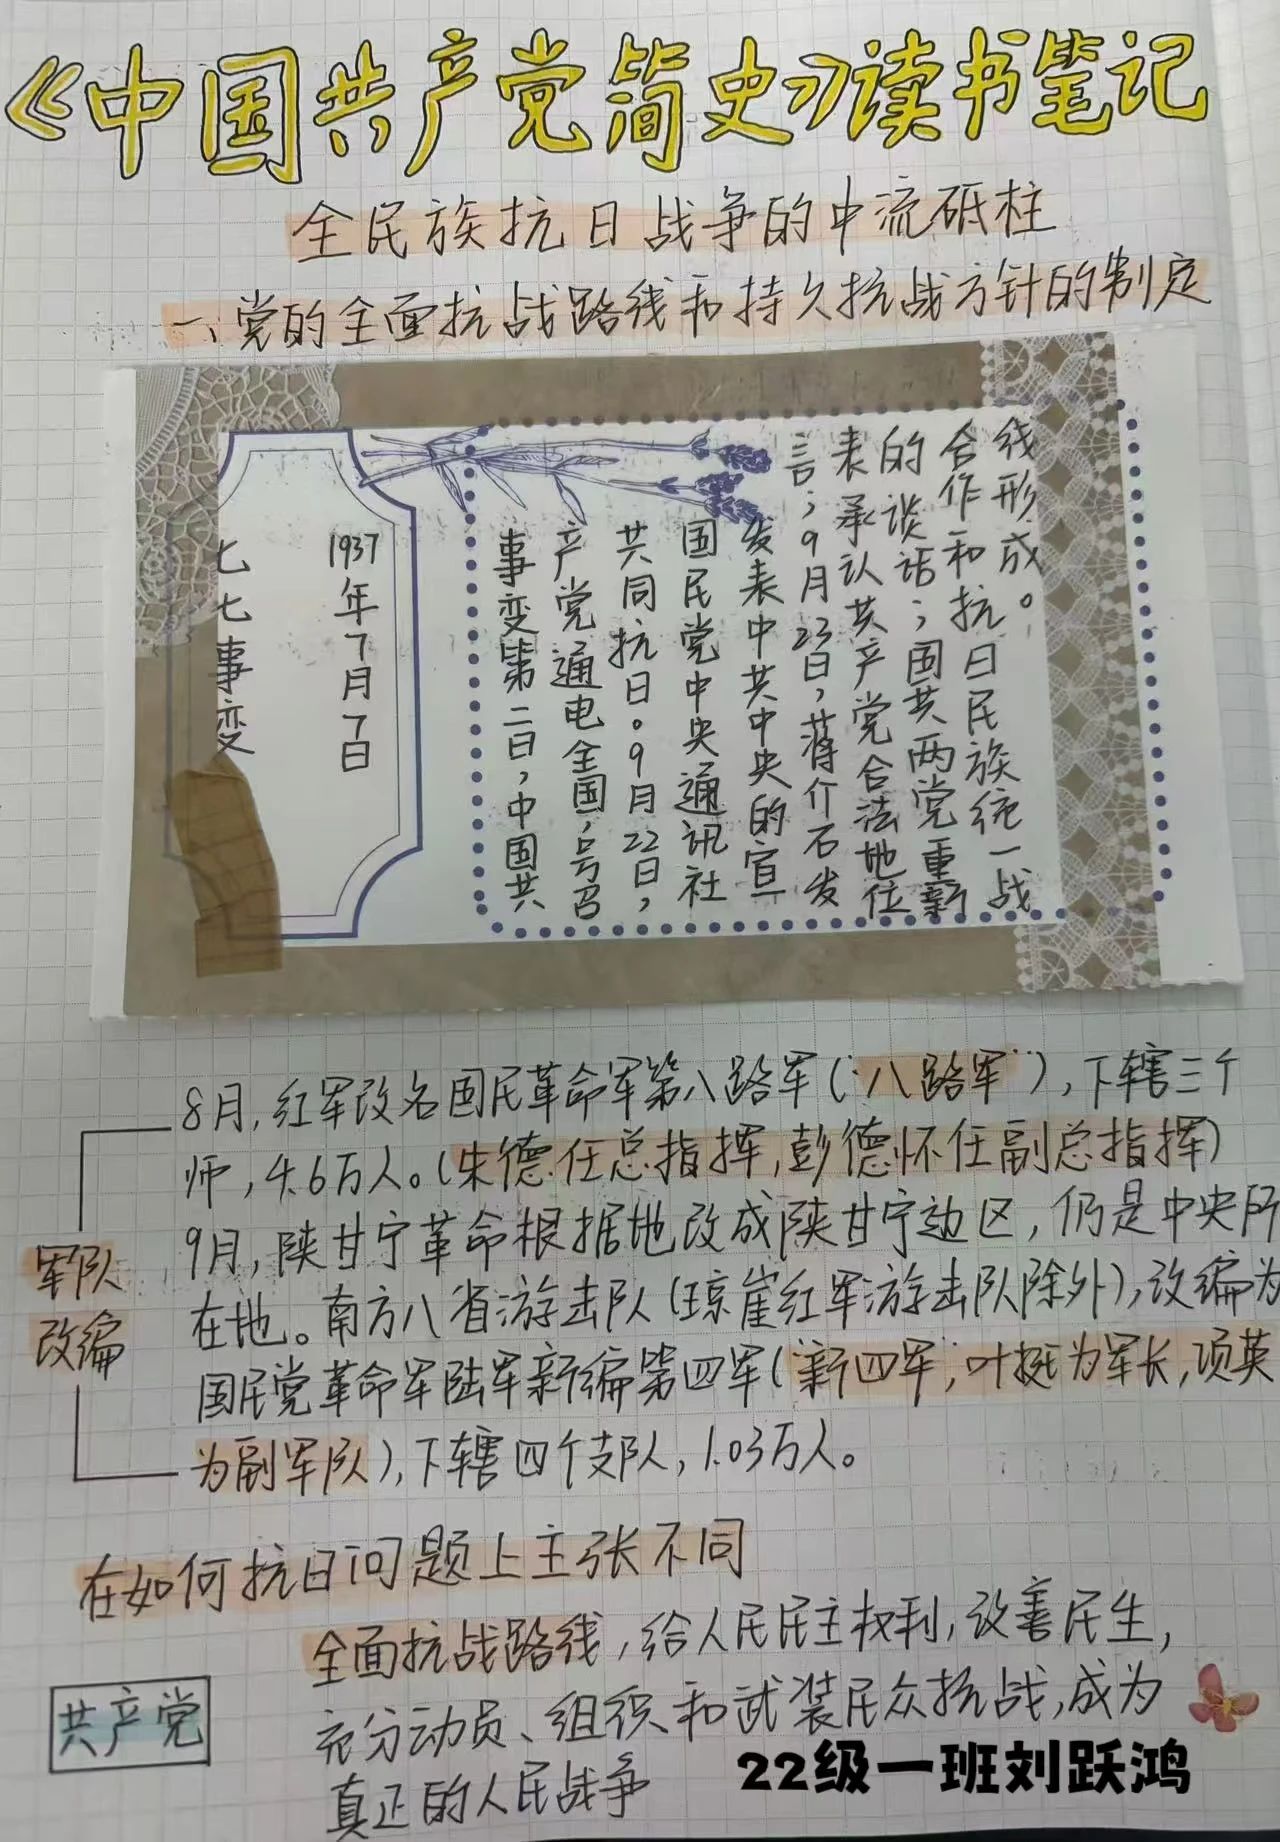 《中国共产党简史》读书笔记
全民族抗日战争的中流砥柱
一、党的全面抗战路线和持久抗战方针的制定
1937年7月7日
七七事变
事变第二日，中国共
产党通电全国，号召
共同抗日。9月22日，
国民党中央通讯社
发表中共中央的宣
言；9月23日，蒋介石发
表承认共产党合法地位
的谈话；国共两党重新
合作和抗日民族统一战
线形成。
军队
改编
8月，红军改名国民革命军第八路军（“八路军”），下辖三个
师，4.6万人。（朱德任总指挥，彭德怀任副总指挥）
9月，陕甘宁革命根据地改成陕甘宁边区，仍是中央所
在地。南方八省游击队（琼崖红军游击队除外），改编为
国民党革命军陆军新编第四军（“新四军”，叶挺为军长，项英
为副军队），下辖四个支队，1.03万人。
在如何抗日问题上主张不同
共产党
全面抗战路线，给人民民主权利，改善民生，
充分动员、组织和武装民众抗战，成为
真正的人民战争
22级一班刘跃鸿